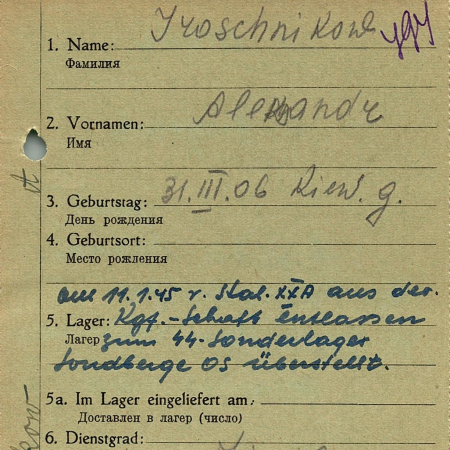 1. Name: Troschnikow
Фамилия
2. Vornamen: Alexandr
Имя
3. Geburtstag: 31.III.06 Kiew. g.
День рождения
4. Geburtsort:
Место рожления
am 11.1.45 v. Stal. XXA aus der
5. Lager: Kgf.-Schaft entlassen
Лагер zum 44-Sonderlager
Sondberge OS überstellt.
5a. Im Lager eingeliefert am:
Доставлен в лагер (число)
6. Dienstgrad: